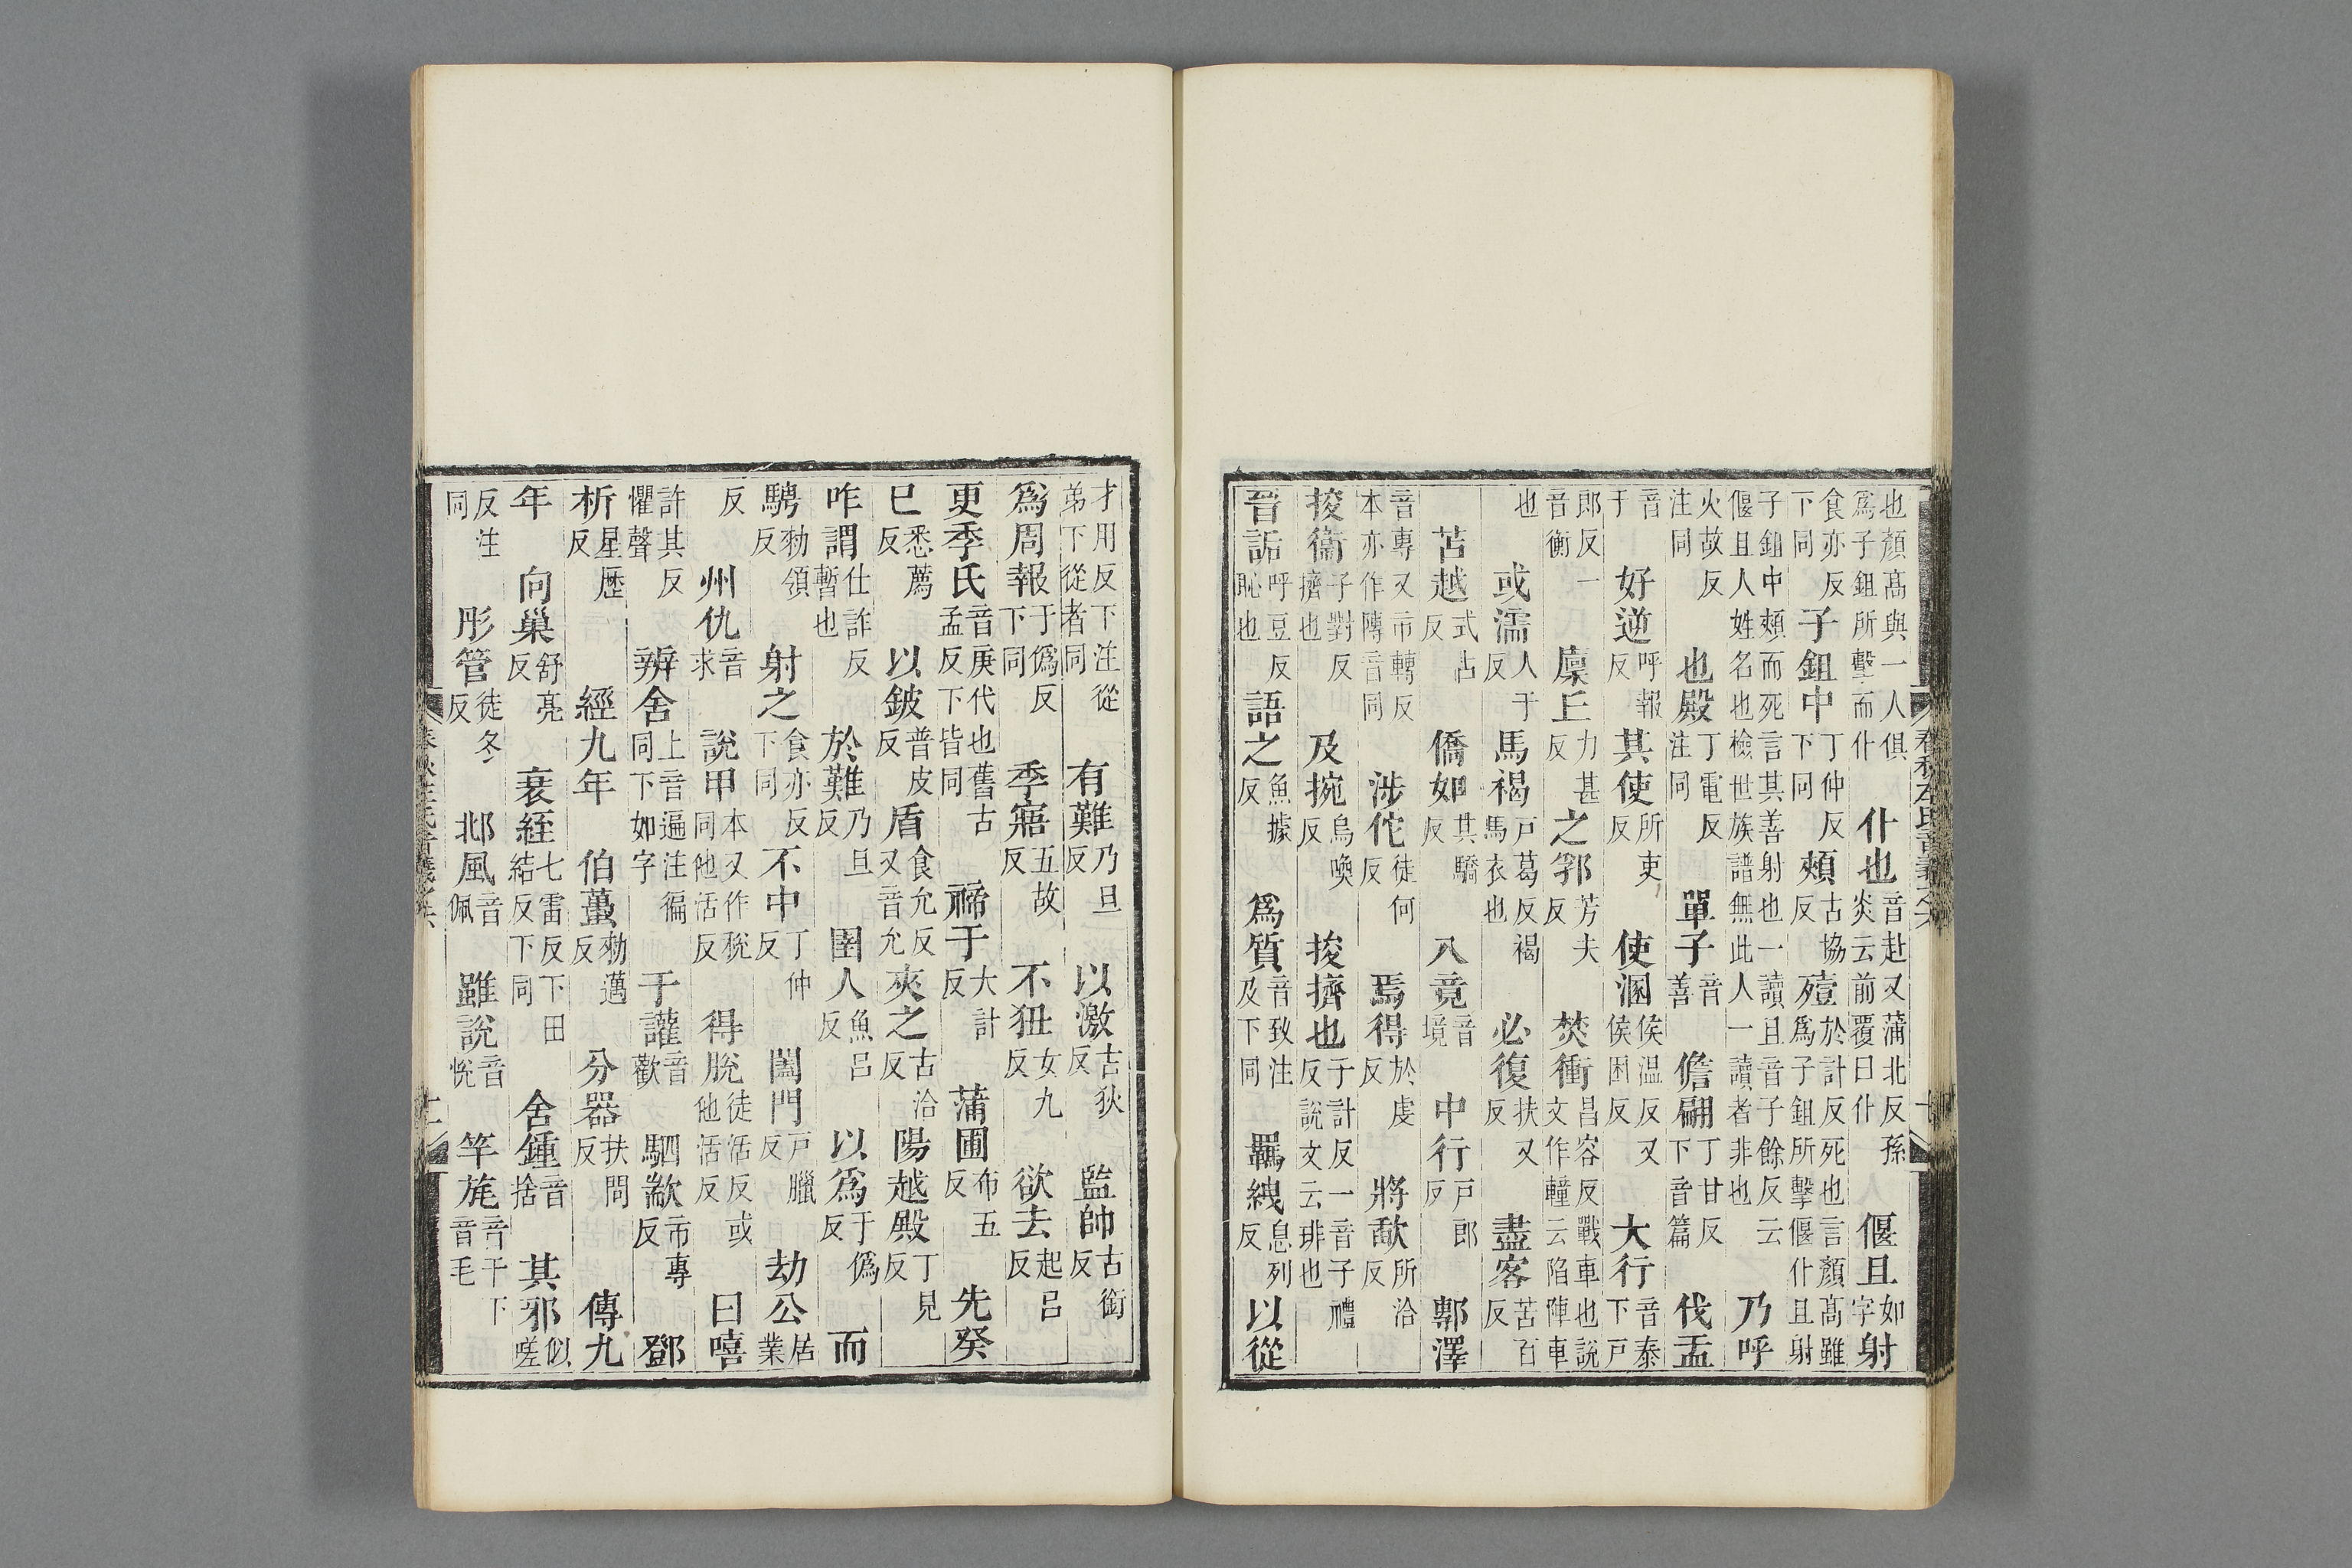 春秋左氏音義之六
十
也顏髙與一人俱爲子鉏所擊而仆仆也音赴又蒲北反孫炎云前覆曰仆偃且如字射
食亦反下同子鉏中丁仲反下同頰古協反殪於計反死也言顏髙雖爲子鉏所擊偃仆且射
子鉏中頰而死言其善射也一讀且音子餘反云偃且人姓名也檢世族譜無此人一讀者非也乃呼
火故反注同也殿丁電反注同單子音善儋翩丁甘反下音篇伐盂
音于好逆呼報反其使所吏反使溷侯温反又侯困反大行音泰下戸
郎反一音衡廩丘力甚反之郛芳夫反焚衝昌容反戰車也說文作䡴云陷陣車
也或濡人于反馬褐戸葛反褐馬衣也必復扶又反盡客苦百反
苫越式占反僑如其驕反入竟音境中行戸郎反鄟澤
音專又市轉反本亦作傳音同涉佗徒何反焉得於虔反將歃所洽反
捘衞子對反擠也及捥烏喚反捘擠也于計反一音子禮反說文云排也
晉詬呼豆反恥也語之魚據反爲質音致注及下同羈紲息列反以從
才用反下注從弟下從者同有難乃旦反以激古狄反監帥古銜反
爲周報于僞反下同季寤五故反不狃女九反欲去起呂反
更季氏音庚代也舊古孟反下皆同禘于大計反蒲圃布五反先癸
巳悉薦反以鈹普皮反盾食允反又音允夾之古洽反陽越殿丁見反
咋謂仕詐反暫也於難乃旦反圉人魚呂反以爲于僞反而
騁勑領反射之食亦反下同不中丁仲反闔門戸臘反劫公居業
反州仇音求說甲本又作稅同他活反得脫徒活反或他活反曰嘻
許其反懼聲辨舍上音遍注徧同下如字于讙音歡駟歂市專反鄧
析星歷反經九年伯蠆勑邁反分器扶問反傳九
年向巢舒亮反衰絰七雷反下田結反下同舍鍾音捨其邪似嗟
反注同彤管徒冬反邶風音佩雖說音恱竿旄音干下音毛